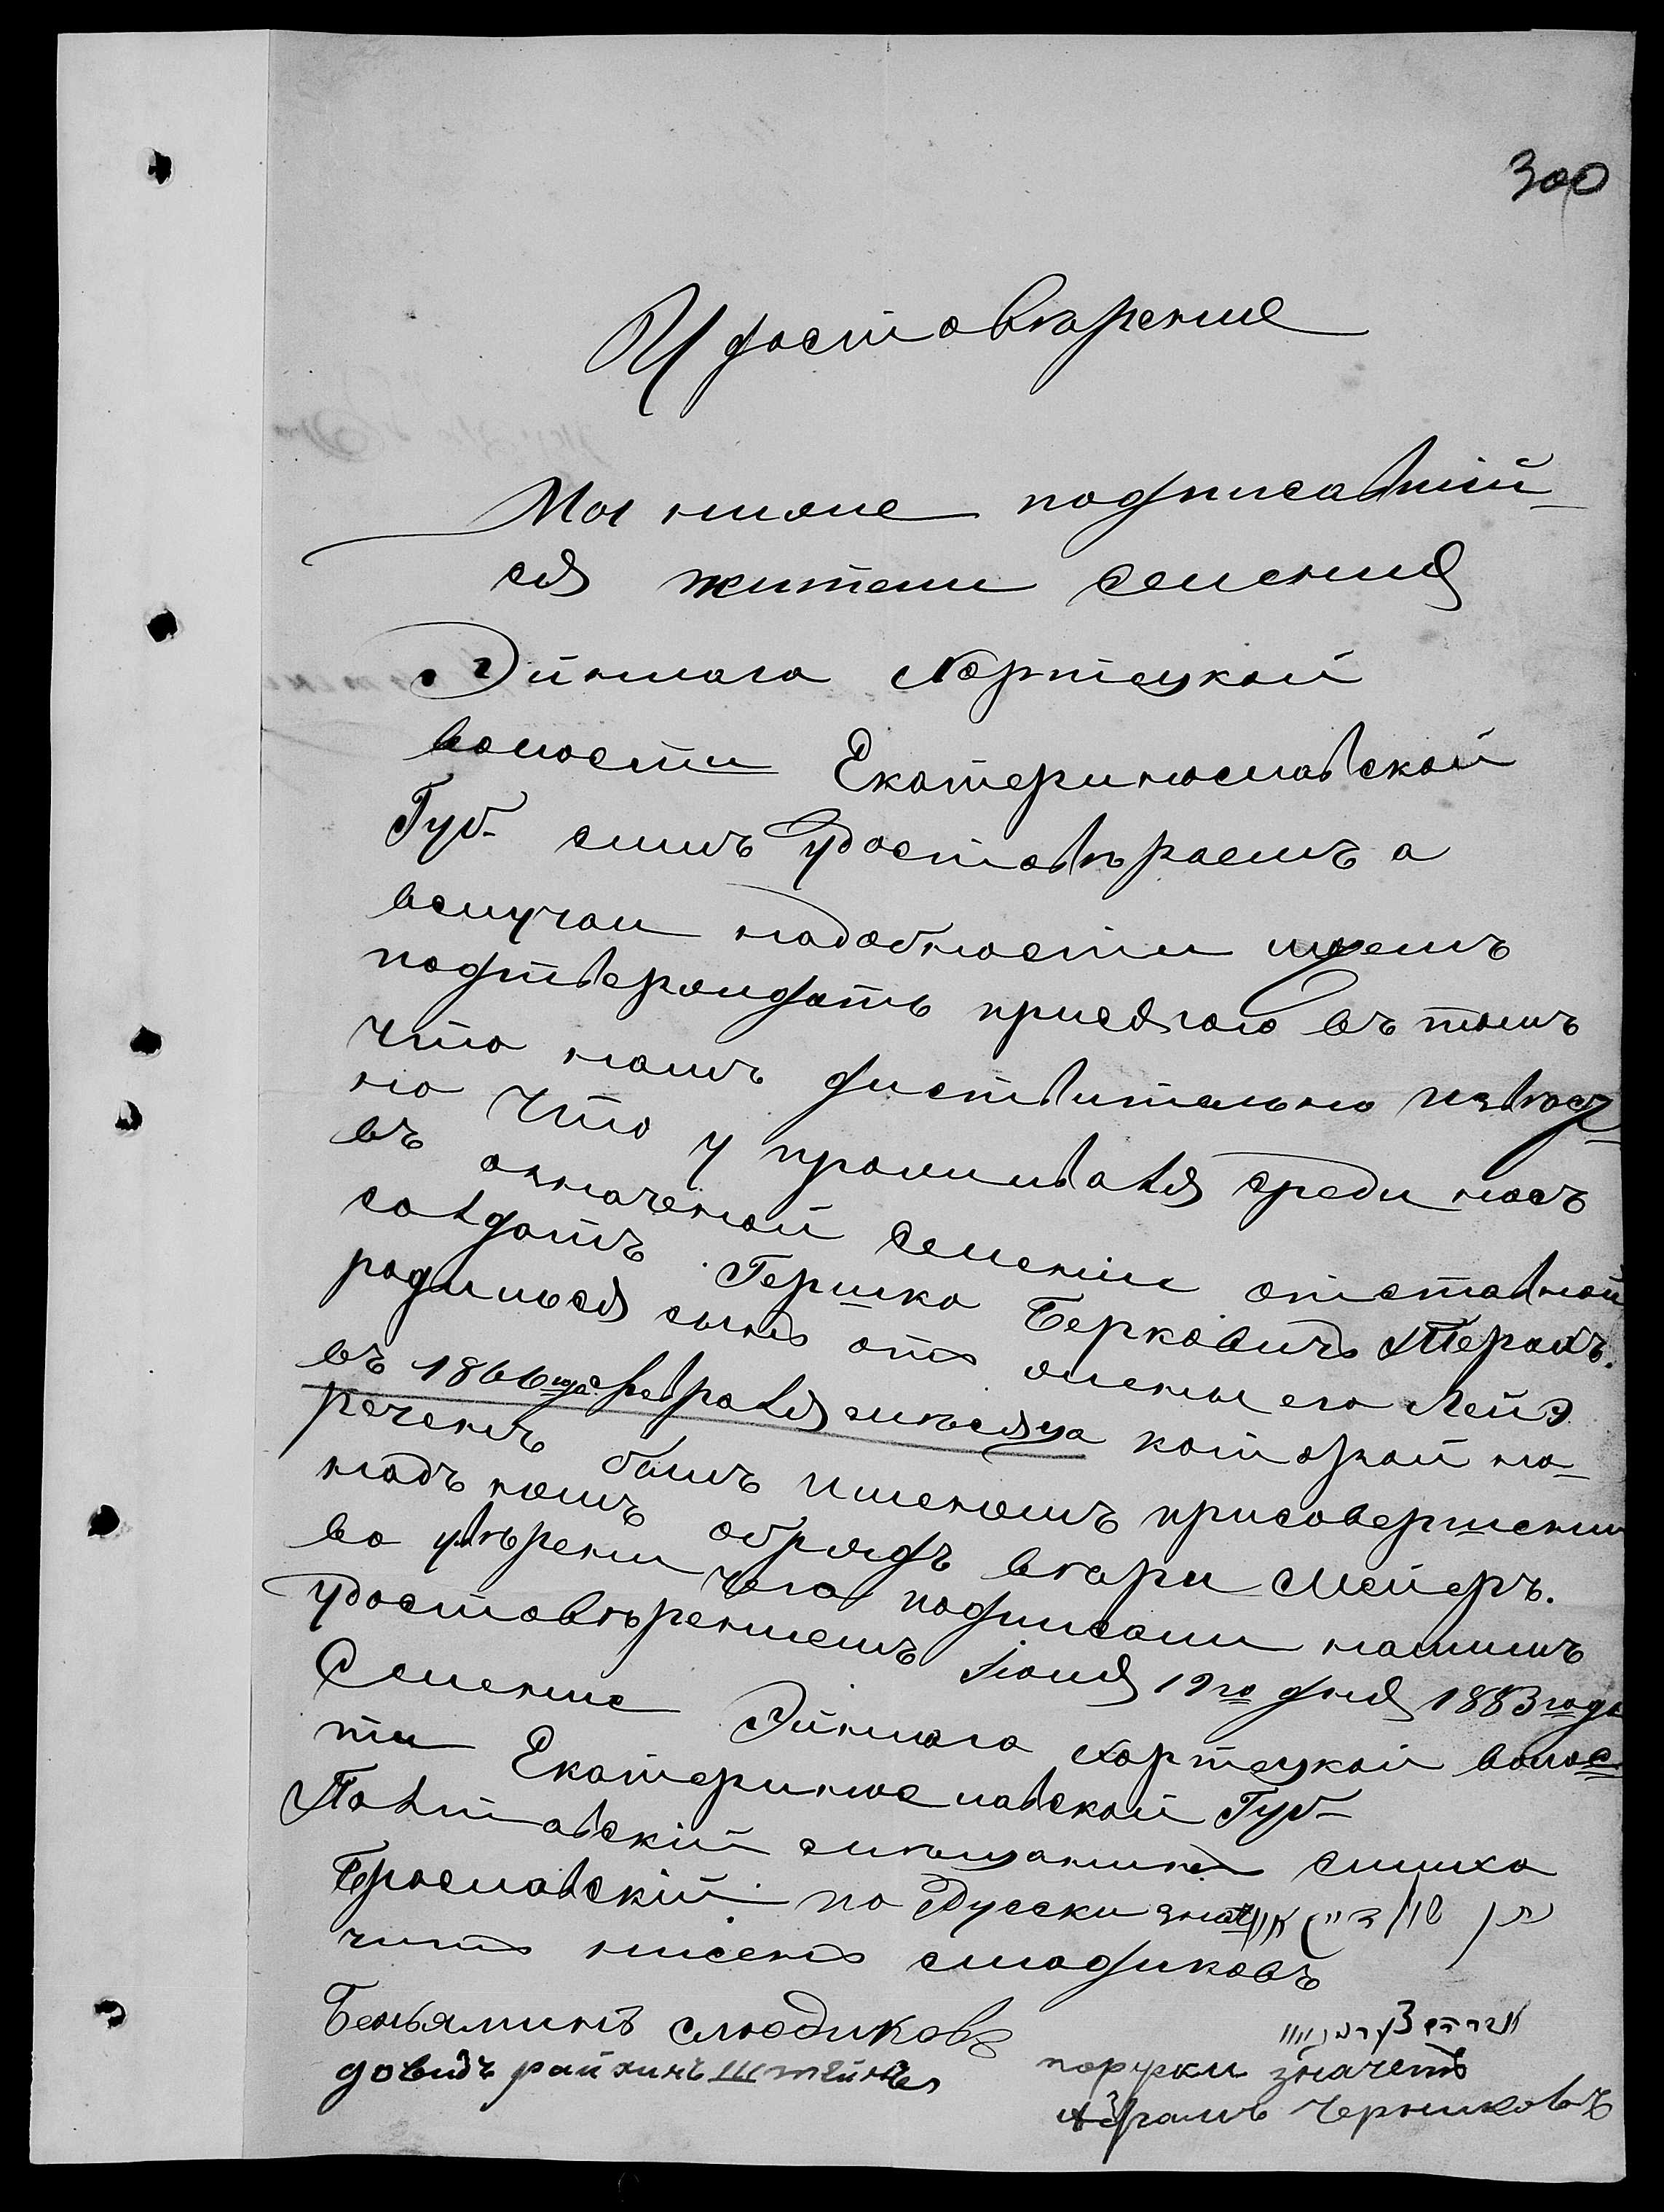 300
Удостовѣрение
Мы ниже подписавшій-
ся жители селения
Эйнлага Хортецкой
волости Екатеринославской
Губ- симъ удостовѣраемъ а
вслучаи надобности можемъ
подтверждать присягою въ томъ
что намъ диствительно извѣст-
но что у проживавя среди насъ
въ означеной селеніи отставной
салдатъ Гершка Берковичъ
родилься сынъ отъ жены его Лей
въ 1866 года февраля мѣсяца которой на-
реченъ былъ именемъ присовершении
надъ нимъ обрядъ вѣри Мейеръ.
во увѣрени чего подписали нашимъ
удостовѣрениемъ Іюня 19го дня 1883 года
Селение Эйнлага Хортецкой волос-
ти Екатеринославской Губ-
Палтавскій мѣщанинъ симха
Брославскій по Русски
чить нисенъ сладиковъ
Беньяминъ слюдиковъ
довидъ райхинъ штейнъ
порурки значетъ
Абрамъ Черниковъ